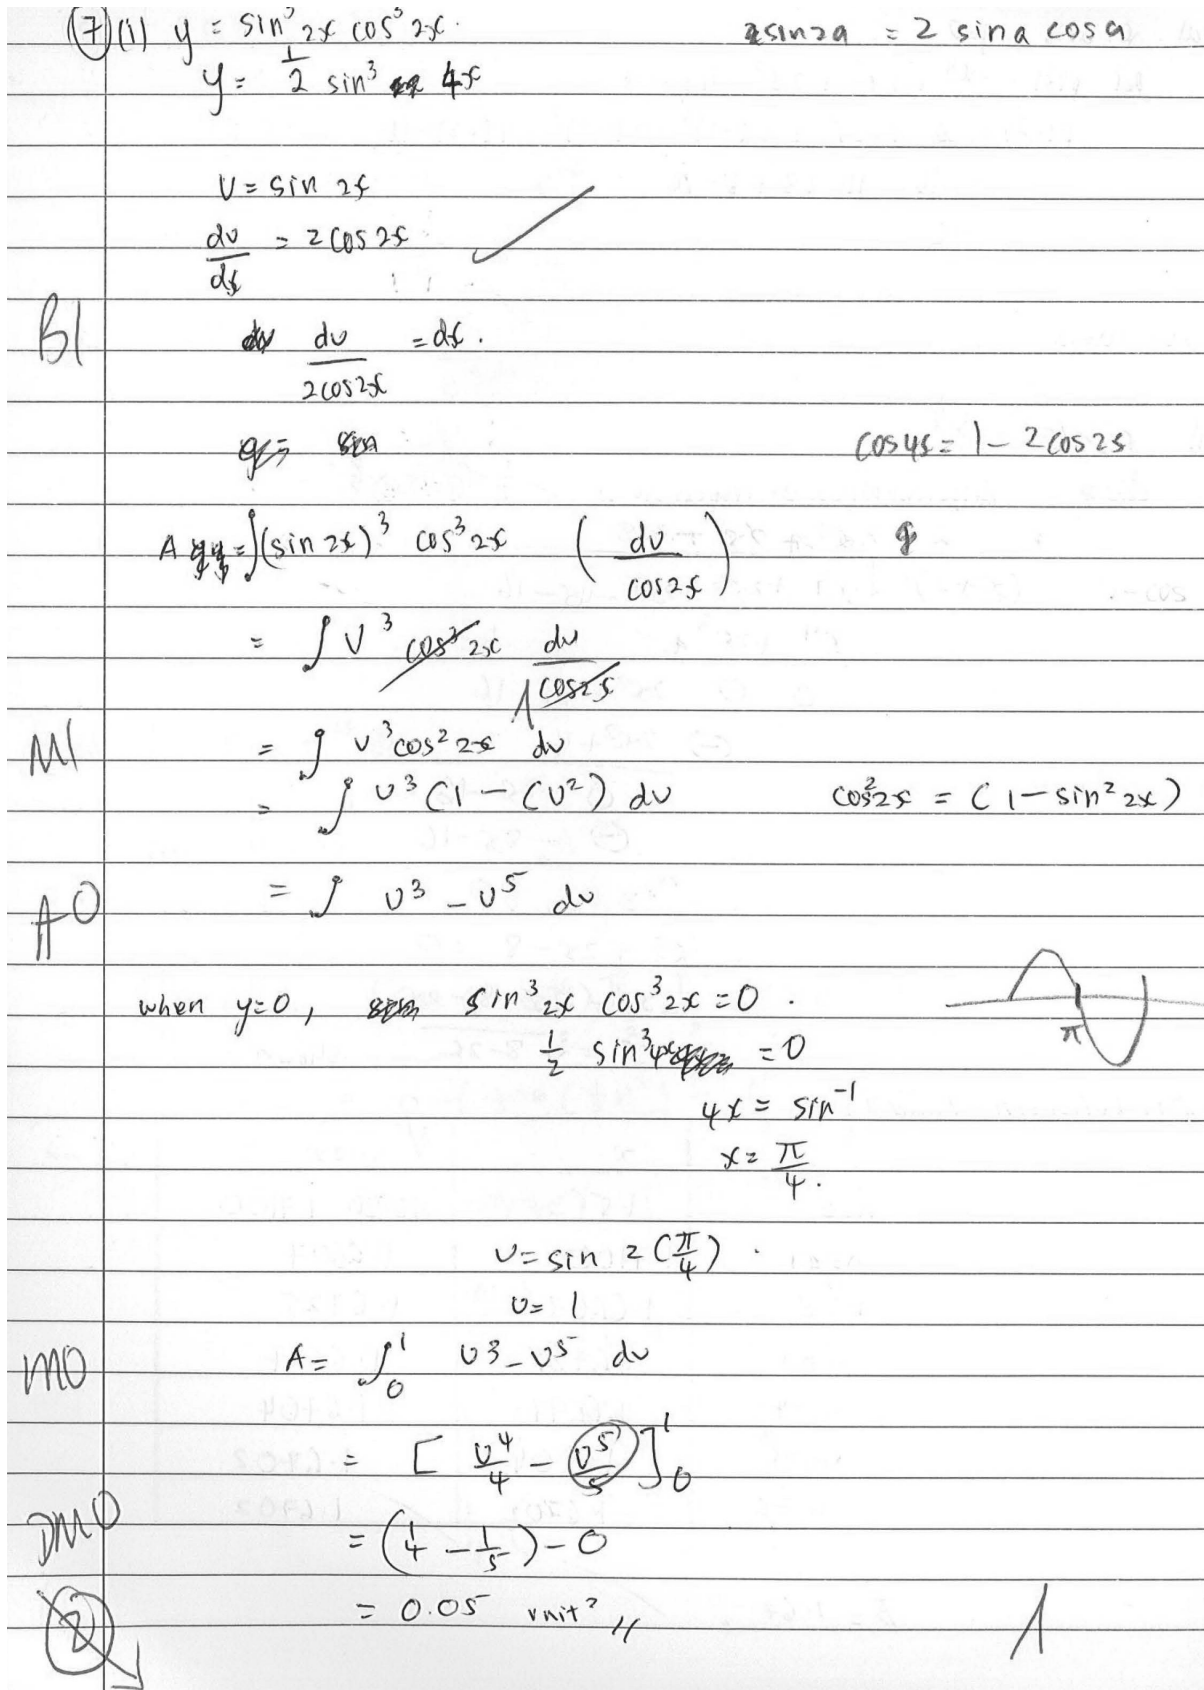 (7) (i) y = sin³ 2x cos³ 2x. sin2a = 2 sina cosa
y = 1/2 sin³ 4x
U = sin 2x
du/dx = 2cos2x ✓
B1 du/2cos2x = dx.
cos4x = 1 - 2cos2x
A = ∫(sin 2x)³ cos³ 2x (du/cos2x)
= ∫ U³ cos³ 2x du/cos2x
M1 = ∫ U³ cos² 2x du
= ∫ U³ (1 - (U²) du cos²2x = (1 - sin² 2x)
A0 = ∫ U³ - U⁵ du
when y=0, sin³ 2x cos³ 2x = 0. π
1/2 sin³ 4x = 0
4x = sin⁻¹
x = π/4.
U = sin 2(π/4).
U = 1
M0 A = ∫₀¹ U³ - U⁵ du
= [U⁴/4 - U⁵/5]₀¹
DM0 = (1/4 - 1/5) - 0
2 = 0.05 unit² // 1